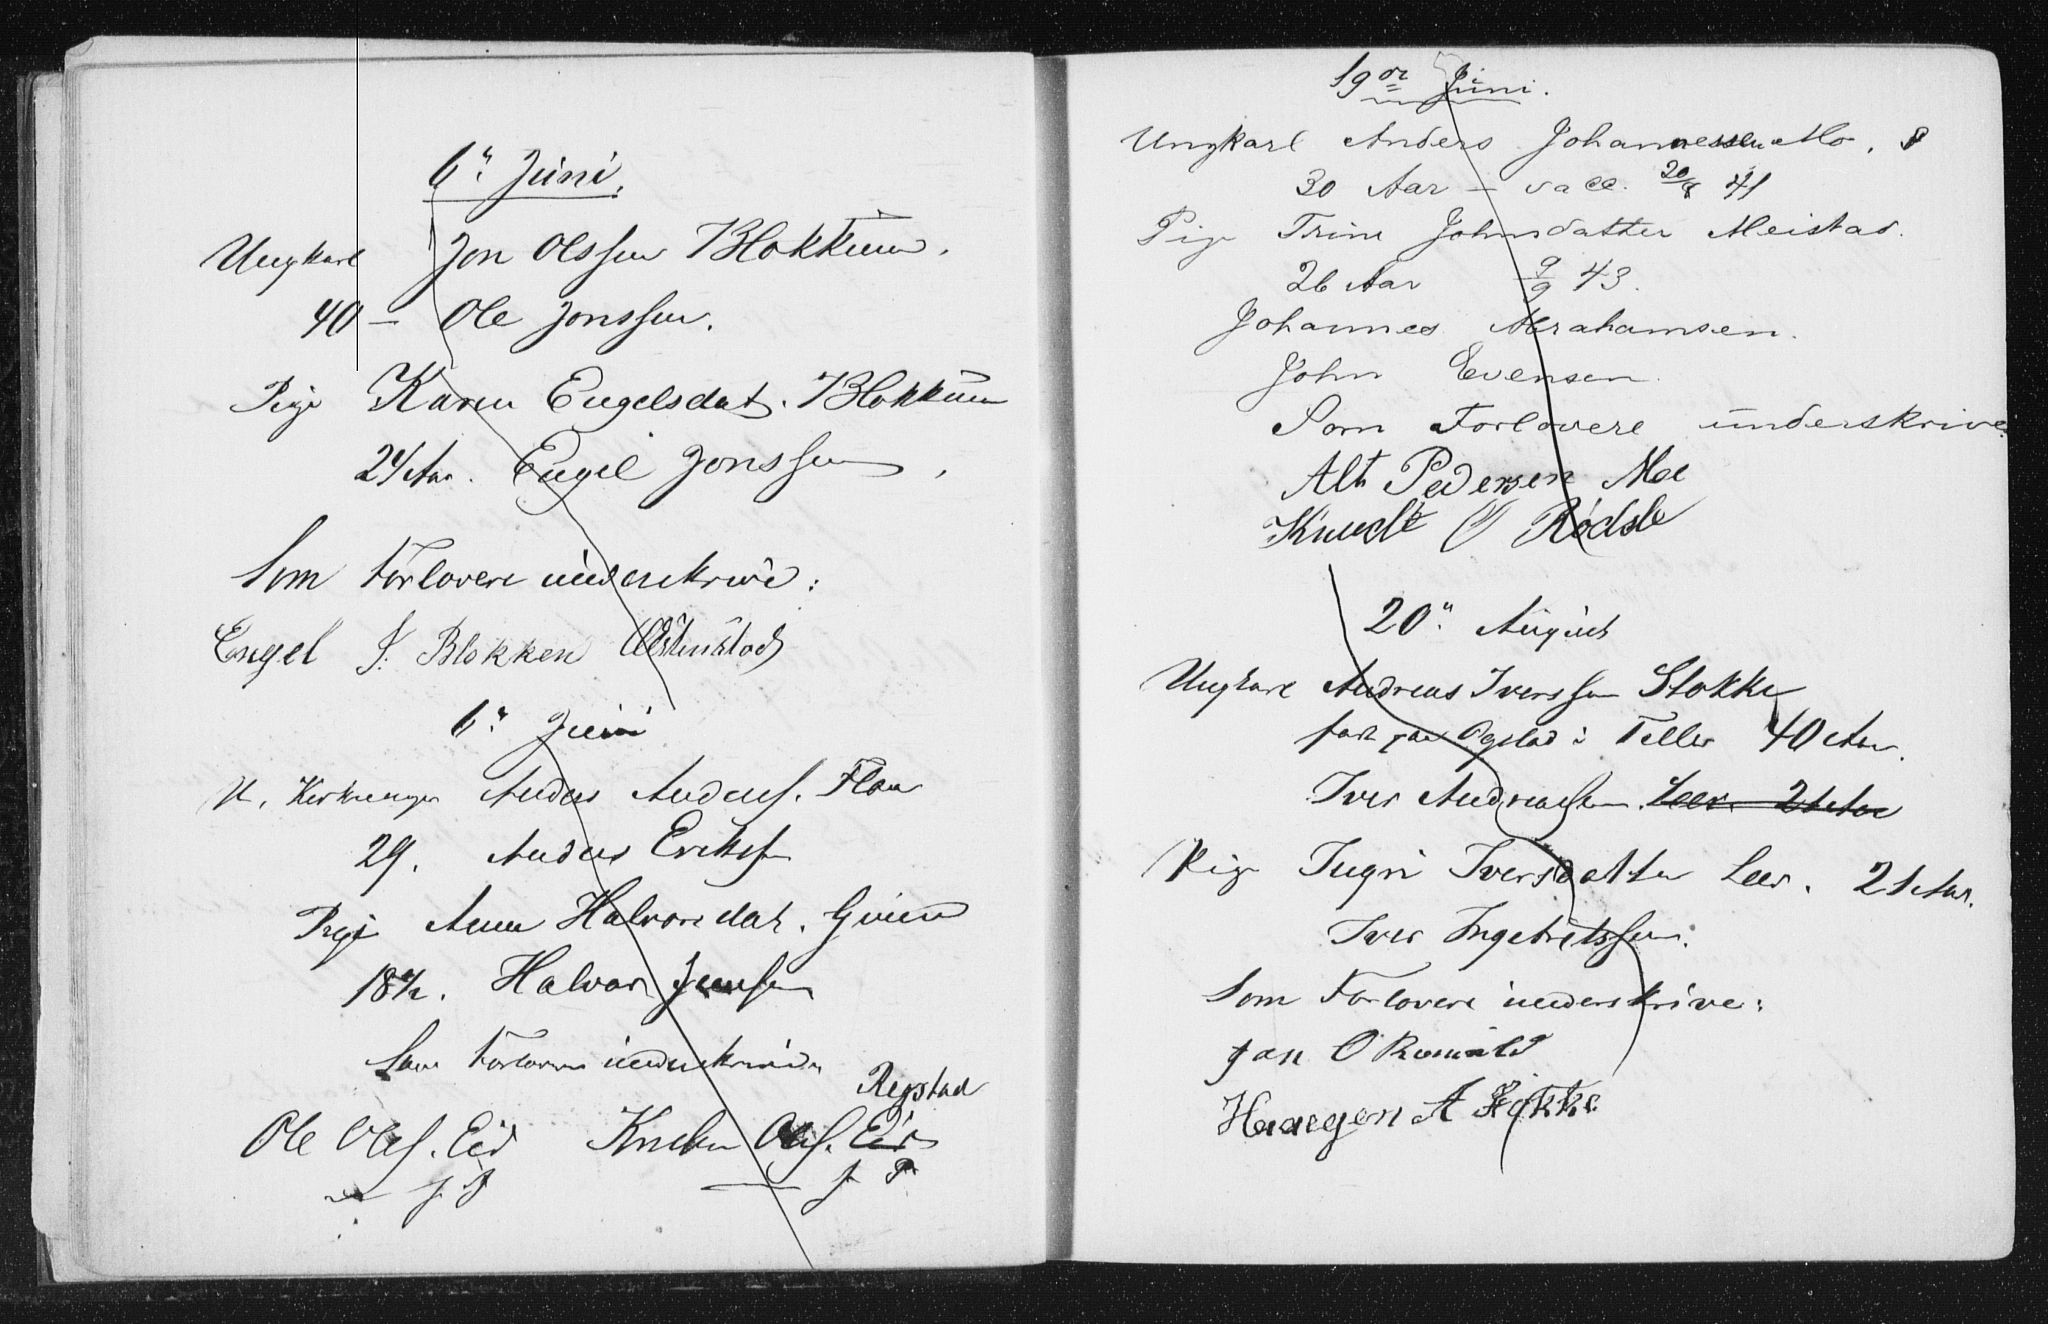 6te Juni.
Ungkarl Jon Olssen Blokkum.
40 – Ole Jonssen.
Pige Karen Engelsdat. Blokkum
24 Aar. Engel Jonssen.
Som Forlovere underskrive:
Engel J. Blokken
6te Juni
U. Anders Anders. Flaa
29. Anders Eriks
Pige Anne Halvorsdat.
18½. Halvor Jensen
Som Forlovere underskrive
Ole Ols. Eid Ols. Eid Regstad
19de Juni.
Ungkarl Anders Johannessen Mo.
30 Aar – vacc. 20/8 41
Pige Trine Johnsdatter Meistad.
26 Aar 9/9 43.
Johannes Abrahamsen.
John Evensen.
Som Forlovere underskrive
Alt Pedersen Moe
Knudt O Rødsle
20de August
Ungkarl Andreas Iverssen Stokke
paa i Tiller 40 Aar.
Iver Andreassen Leer 21 Aar
Pige Ingri Iversdatter Leer. 21 Aar.
Iver Ingebretssen.
Som Forlovere underskrive:
Jon O
Haagen A Stokke